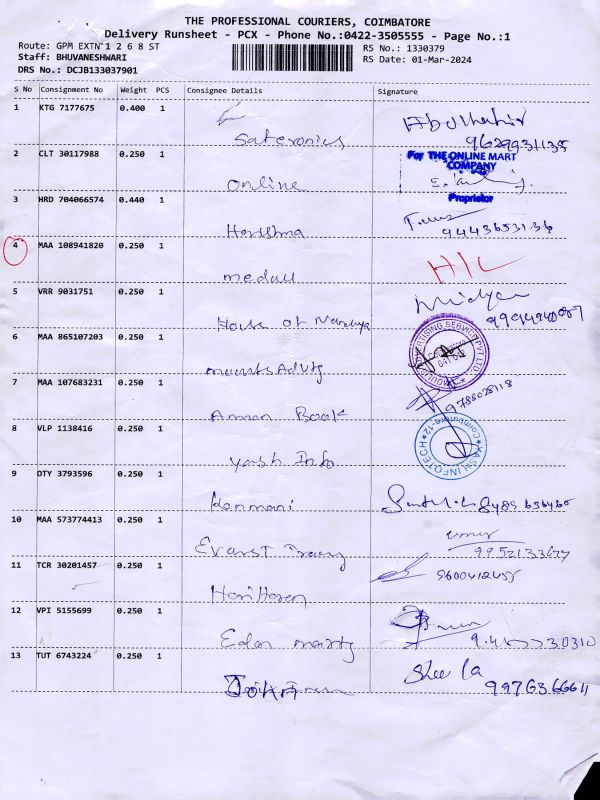 THE PROFESSIONAL COURIERS, COIMBATORE
Delivery Runsheet - PCX - Phone No.:0422-3505555 - Page No.:1
Route: GPM EXTN 1 2 6 8 ST
RS No.: 1330379
Staff: BHUVANESHWARI
RS Date: 01-Mar-2024
DRS No.: DCJB133037901
S No Consignment No Weight PCS Consignee Details Signature
1 KTG 7177675 0.400 1
Sateronics
9629931135
2 CLT 30117988 0.250 1
For THE ONLINE MART
COMPANY
Online
Proprietor
3 HRD 704066574 0.440 1
9443653136
4 MAA 108941820 0.250 1
medall
5 VRR 9031751 0.250 1
House of
6 MAA 865107203 0.250 1
7 MAA 107683231 0.250 1
9788028118
Amman Book
8 VLP 1138416 0.250 1
YASH INFOTECH
Coimbatore-12
Yash Info
9 OTY 3793596 0.250 1
Kanmani
10 MAA 573774413 0.250 1
9952133677
11 TCR 30201457 0.250 1
9600412455
Hari Haran
12 VPI 5155699 0.250 1
Eden
13 TUT 6743224 0.250 1
Sheela
9976366611